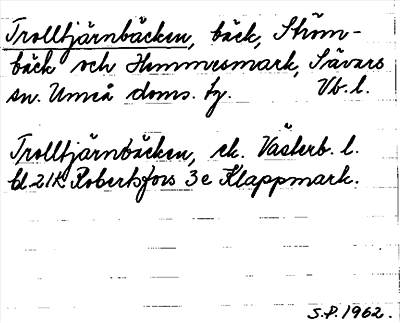 Trolltjärnbäcken, bäck, Ström-
bäck och Hemmesmark, Sävars
sn. Umeå doms. fg. Vb. l.
Trolltjärnbäcken, ek. Västerb. l.
bl 21K Robertsfors 3e Klappmark.
S.P. 1962.